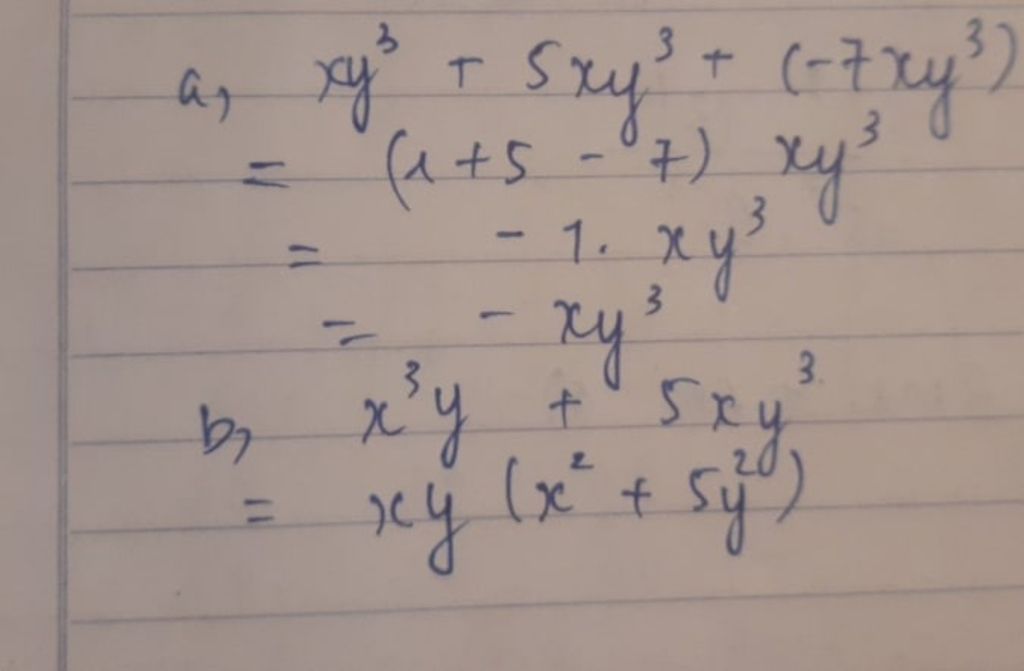 a, xy³ + 5xy³ + (-7xy³)
= (1+5 - 7) xy³
= - 1. xy³
= - xy³
b, x³y + 5xy³
= xy (x² + 5y²)